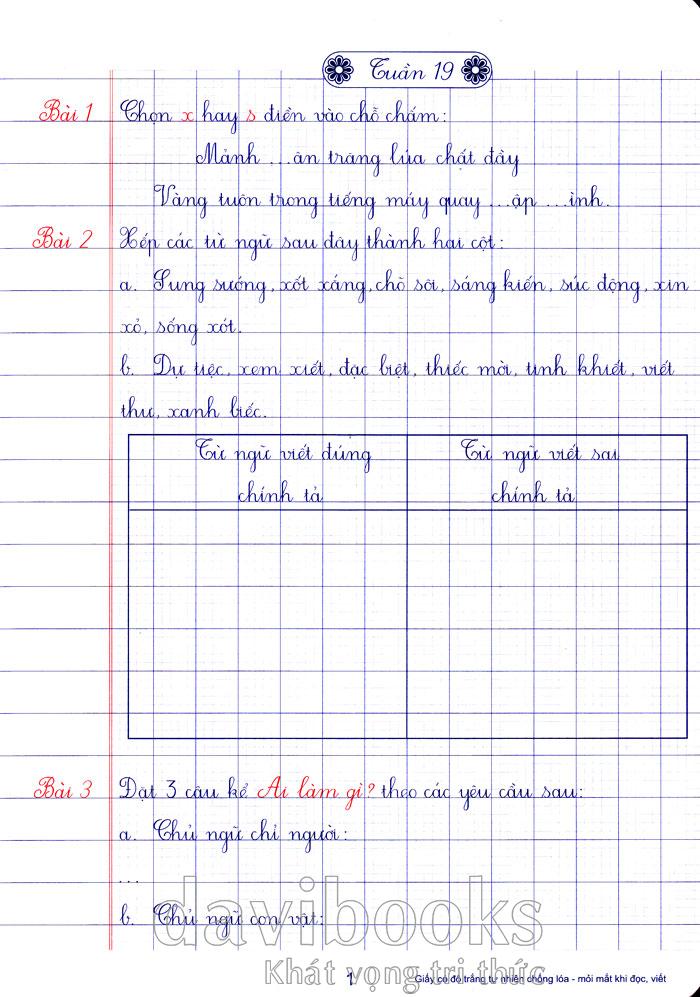 Tuần 19
Bài 1 Chọn x hay s điền vào chỗ chấm:
Mảnh ...ân trăng lúa chất đầy
Vàng tuôn trong tiếng máy quay ...ập ...ình.
Bài 2 Xếp các từ ngữ sau đây thành hai cột:
a. Sung sướng, xốt xáng, chỗ sôi, sáng kiến, súc động, xin
xỏ, sống xót.
b. Dự tiệc, xem xiết, đặc biệt, thiếc mời, tinh khiết, viết
thư, xanh biếc.
Từ ngữ viết đúng Từ ngữ viết sai
chính tả chính tả
Bài 3 Đặt 3 câu kể Ai làm gì? theo các yêu cầu sau:
a. Chủ ngữ chỉ người:
...
b. Chủ ngữ con vật:
davibooks
Khát vọng tri thức
1 Giấy có độ trắng tự nhiên chống lóa - mỏi mắt khi đọc, viết